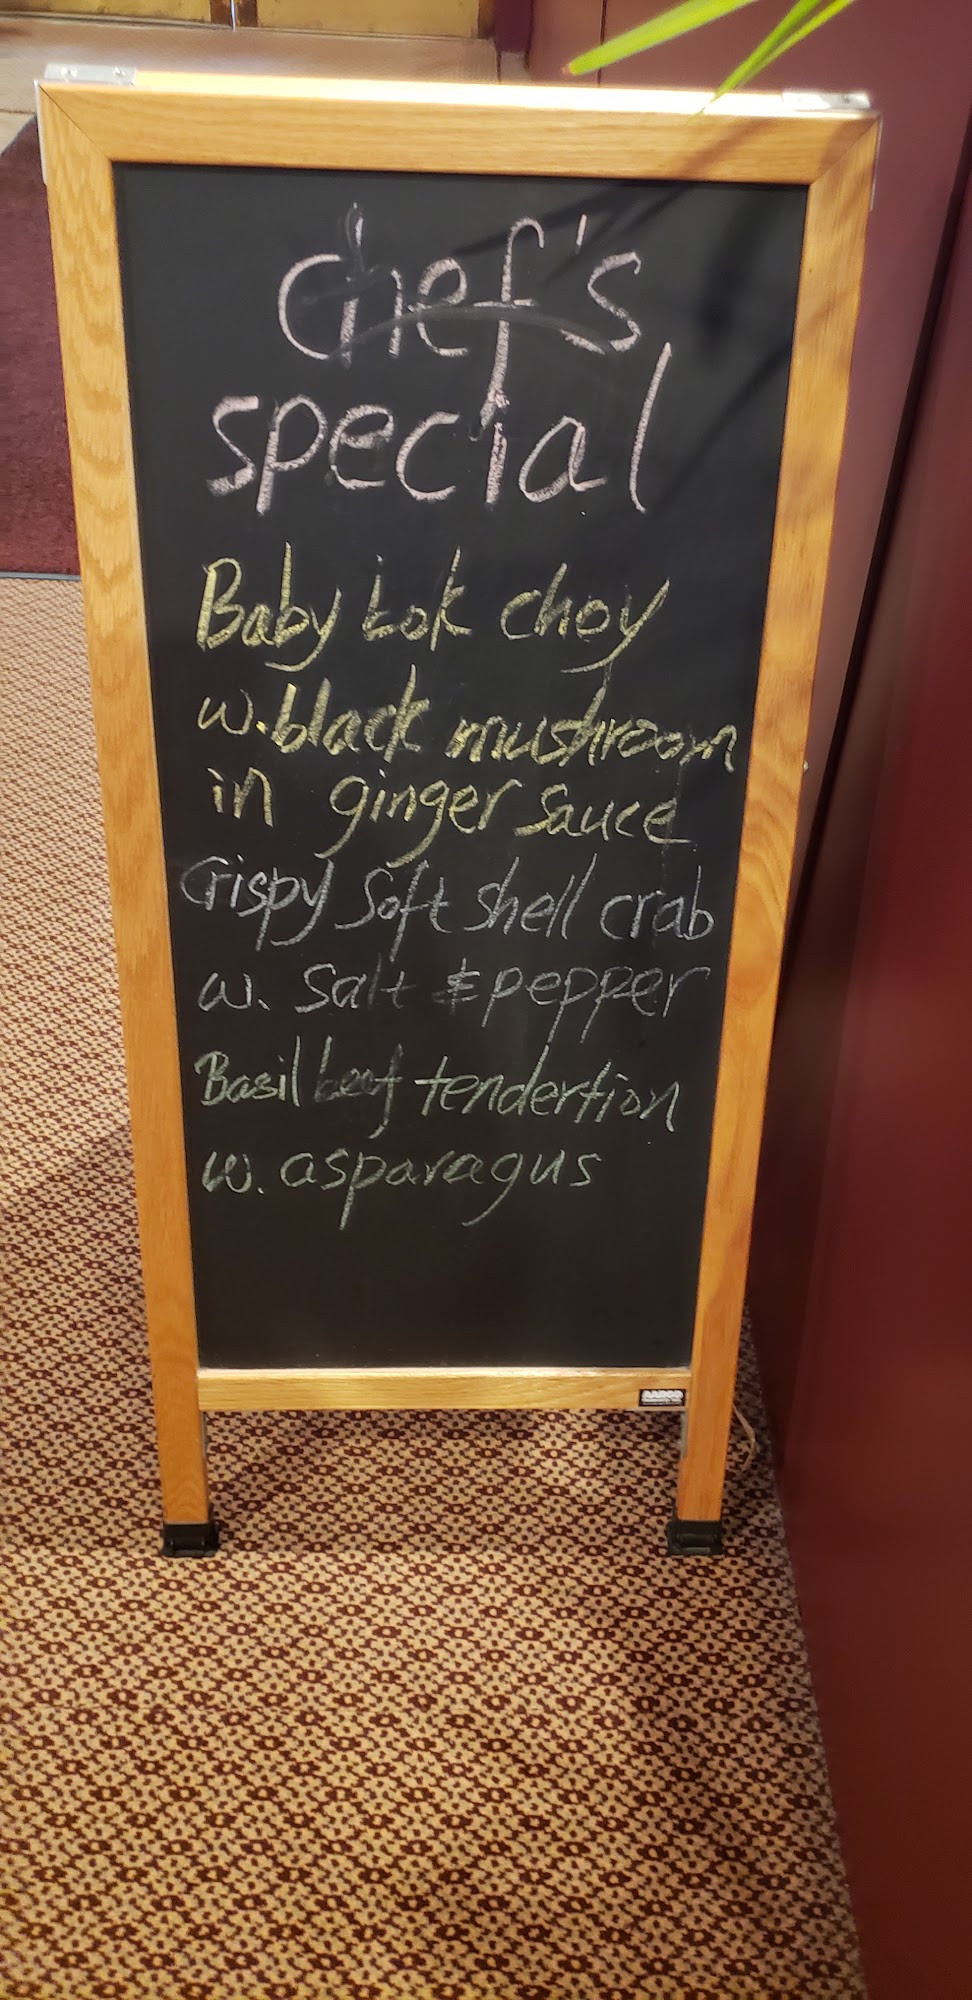 chef's
special
Baby bok choy
w. black mushroom
in ginger sauce
Crispy Soft shell crab
w. salt & pepper
Basil beef tendertion
w. asparagus
AARCO